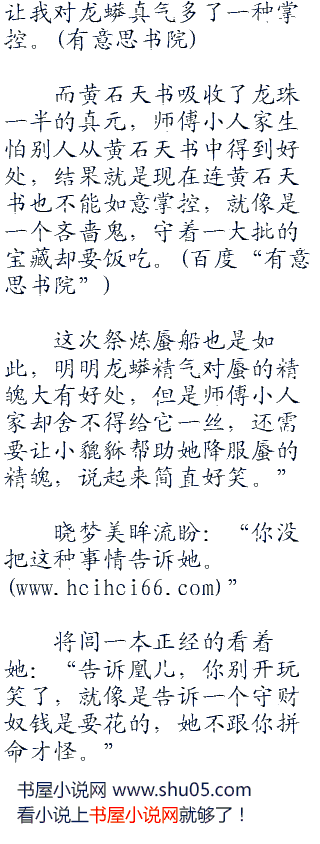 让我对龙蟒真气多了一种掌
控。(有意思书院)
而黄石天书吸收了龙珠
一半的真元，师傅小人家生
怕别人从黄石天书中得到好
处，结果就是现在连黄石天
书也不能如意掌控，就像是
一个吝啬鬼，守着一大批的
宝藏却要饭吃。(百度“有意
思书院”)
这次祭炼蜃船也是如
此，明明龙蟒精气对蜃的精
魄大有好处，但是师傅小人
家却舍不得给它一丝，还需
要让小貔貅帮助她降服蜃的
精魄，说起来简直好笑。”
晓梦美眸流盼：“你没
把这种事情告诉她。
(www.hcihci66.com)”
将闾一本正经的看着
她：“告诉凰儿，你别开玩
笑了，就像是告诉一个守财
奴钱是要花的，她不跟你拼
命才怪。”
书屋小说网 www.shu05.com
看小说上书屋小说网就够了！